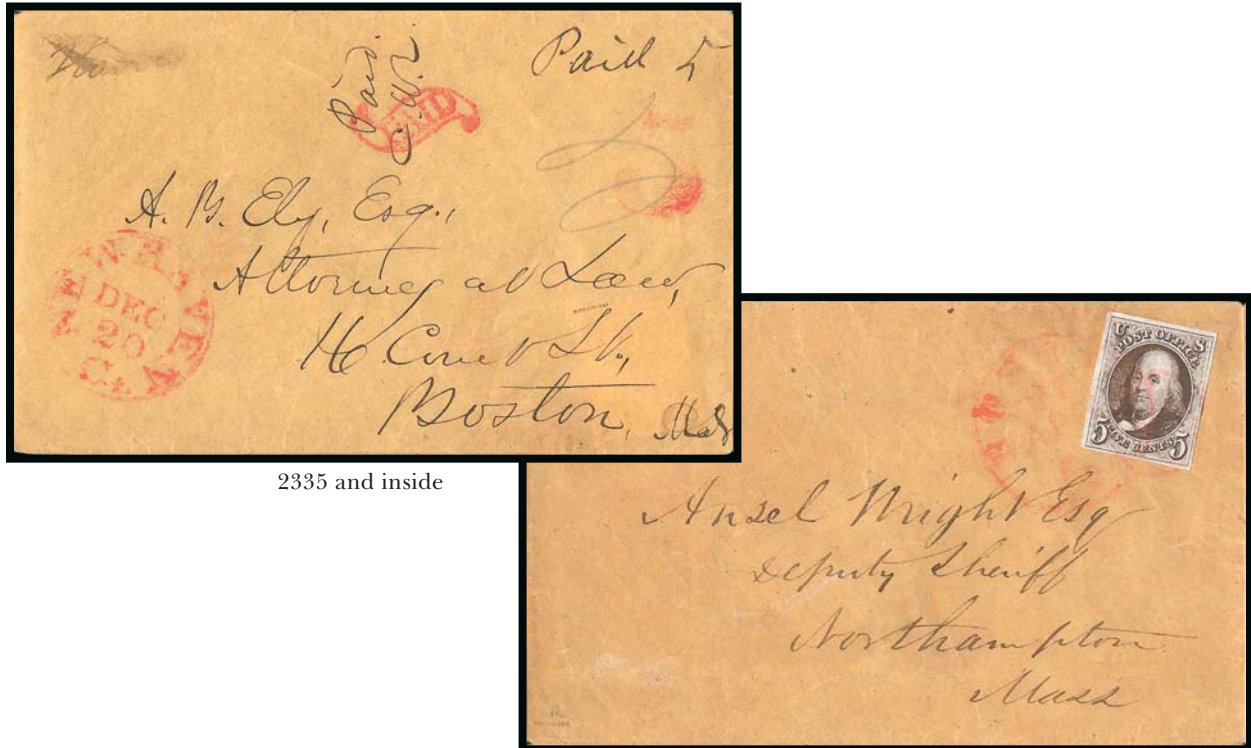 Paid 5
Paid
PAID
5
A. B. Ely, Esq.,
Attorney at Law,
16 Court St.,
Boston, Mass
NEW HAVEN
DEC
20
Ct.
2335 and inside
U S
POST OFFICE
5 FIVE CENTS 5
Ansel Wright Esq
Deputy Sheriff
Northampton
Mass